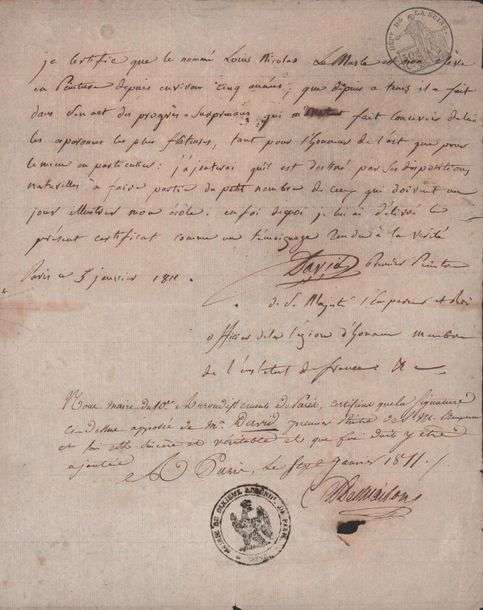 je certifie que le nommé Louis Nicolas Le Masle est mon élève
en Peinture depuis environ cinq années, que depuis ce tems il a fait
dans son art des progrès surprenans, qui m'ont fait concevoir de lui
les espérances les plus flatteuses, tant pour l'honneur de l'art que pour
le mien en particulier: j'ajouterai qu'il est destiné par ses dispositions
naturelles à faire partie du petit nombre de ceux qui doivent un
jour illustrer mon école. en foi de quoi je lui ai délivré le
présent certificat comme un témoignage rendu à la vérité
Paris ce 5 janvier 1811.
David Premier Peintre
de S. Majesté l'Empereur et Roi
officier de la légion d'honneur membre
de l'institut de france &c
Nous maire du Arrondissement de Paris, certifions que la signature
ci dessus apposée de Mr. David premier Peintre de
est sincère et véritable et que foi doit y être
ajoutée
A Paris, le sept Janvier 1811.
MAIRIE DU ARROND. DE PARIS
DEPT DE LA SEINE